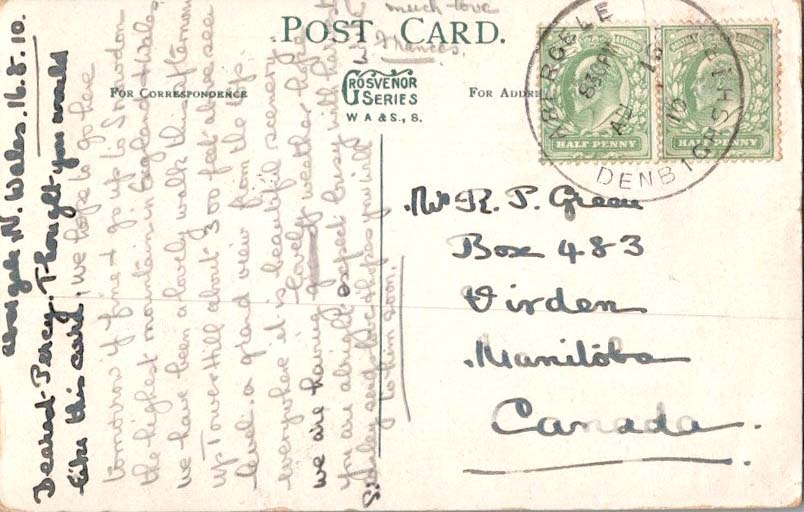 POST CARD.
FOR CORRESPONDENCE
GROSVENOR
SERIES
W A & S., S.
FOR ADDRE
ABERGELE
8 30 PM
AU 16
10
DENBIGHSHIRE
HALF PENNY
HALF PENNY
Mr R. P. Green
Box 483
Virden
Manitoba
Canada.
Abergele N. Wales. 16.8.10.
Dearest Percy. Thought you would
like this card, we hope to go here
tomorrow if fine & go up to Snowdon
the highest mountain in England & Wales,
we have been a lovely walk this afternoon
up Tower Hill about 300 feet above sea
level. a grand view from the top.
everywhere it is beautiful scenery.
we are having lovely weather hope
you are alright expect busy with harvest
Sidley send hopes you will
to him soon.
much love
Frances.